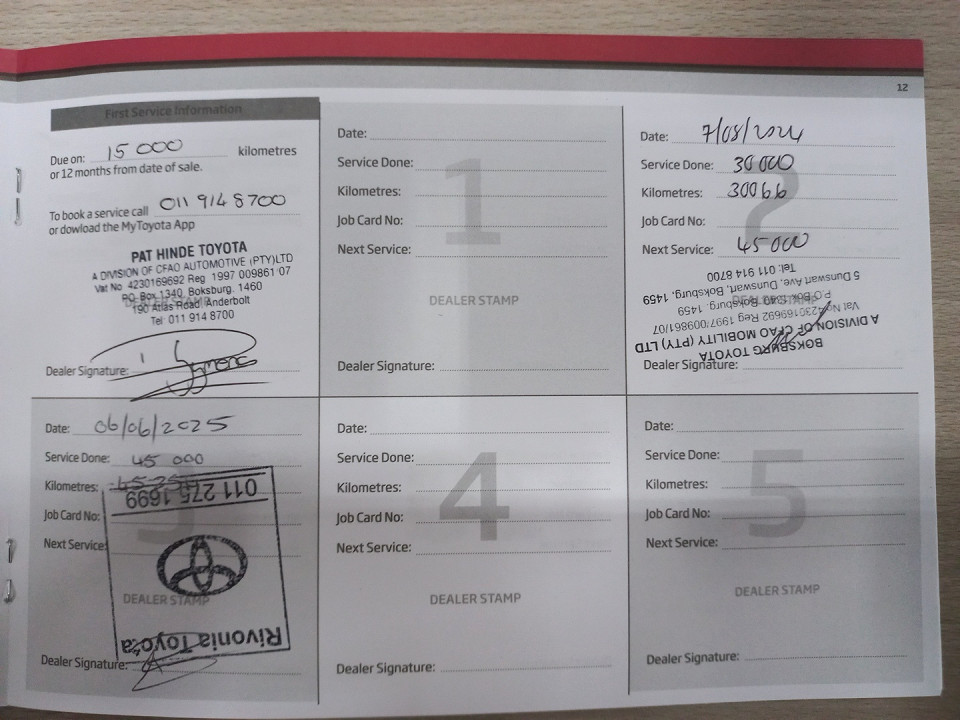 12
First Service Information
Due on: 15 000 kilometres
or 12 months from date of sale.
To book a service call 011 914 8700
or dowload the MyToyota App
PAT HINDE TOYOTA
A DIVISION OF CFAO AUTOMOTIVE (PTY)LTD
Vat No 4230169692 Reg 1997 009861 07
PO Box 1340, Boksburg, 1460
DEALER STAMP
190 Atlas Road, Anderbolt
Tel: 011 914 8700
Dealer Signature:
1
Date:
Service Done:
Kilometres:
Job Card No:
Next Service:
DEALER STAMP
Dealer Signature:
2
Date: 7/08/2024
Service Done: 30 000
Kilometres: 30066
Job Card No:
Next Service: 45 000
DEALER STAMP
BOKSBURG TOYOTA
A DIVISION OF CFAO MOBILITY (PTY) LTD
Vat No 4230169692 Reg 1997/009861/07
P.O. Box 1340, Boksburg, 1459
5 Dunswart Ave, Dunswart, Boksburg, 1459
Tel: 011 914 8700
Dealer Signature:
3
Date: 06/06/2025
Service Done: 45 000
Kilometres:
Job Card No:
Next Service:
DEALER STAMP
Rivonia Toyota
011 275 1699
Dealer Signature:
4
Date:
Service Done:
Kilometres:
Job Card No:
Next Service:
DEALER STAMP
Dealer Signature:
5
Date:
Service Done:
Kilometres:
Job Card No:
Next Service:
DEALER STAMP
Dealer Signature: